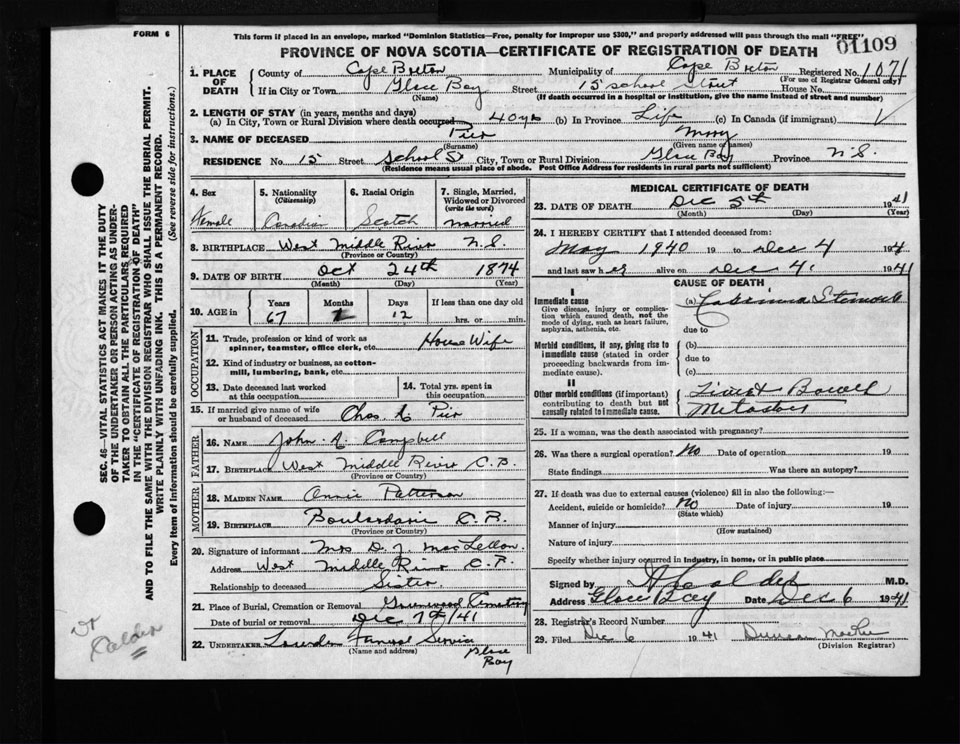 FORM 6
This form if placed in an envelope, marked "Dominion Statistics—Free, penalty for improper use $300," and properly addressed will pass through the mail "FREE"
01109
PROVINCE OF NOVA SCOTIA—CERTIFICATE OF REGISTRATION OF DEATH
1. PLACE OF DEATH
County of Cape Breton Municipality of Cape Breton Registered No. 1071
(For use of Registrar General only)
If in City or Town Glace Bay Street 15 School Street House No.
(Name) (If death occurred in a hospital or institution, give the name instead of street and number)
2. LENGTH OF STAY (in years, months and days)
(a) In City, Town or Rural Division where death occurred 40 yrs (b) In Province Life (c) In Canada (if immigrant)
3. NAME OF DECEASED Pier Mary
(Surname) (Given name or names)
RESIDENCE No. 15 Street School St City, Town or Rural Division Glace Bay Province N.S.
(Residence means usual place of abode. Post Office Address for residents in rural parts not sufficient)
4. Sex
Female
5. Nationality (Citizenship)
Canadian
6. Racial Origin
Scotch
7. Single, Married, Widowed or Divorced (write the word)
Married
8. BIRTHPLACE West Middle River N.S.
(Province or Country)
9. DATE OF BIRTH Oct 24th 1874
(Month) (Day) (Year)
10. AGE in Years Months Days If less than one day old
67 12 hrs. or min.
OCCUPATION
11. Trade, profession or kind of work as spinner, teamster, office clerk, etc. House Wife
12. Kind of industry or business, as cotton-mill, lumbering, bank, etc.
13. Date deceased last worked at this occupation
14. Total yrs. spent in this occupation
15. If married give name of wife or husband of deceased Chas A Pier
FATHER
16. NAME John A. Campbell
17. BIRTHPLACE West Middle River C.B.
(Province or Country)
MOTHER
18. MAIDEN NAME Annie Patterson
19. BIRTHPLACE Boulardarie C.B.
(Province or Country)
20. Signature of informant Mrs D. J. MacLellan
Address West Middle River C.B.
Relationship to deceased Sister
21. Place of Burial, Cremation or Removal Greenwood Cemetery
Date of burial or removal Dec 7th/41
22. UNDERTAKER Funeral Service
(Name and address) Glace Bay
MEDICAL CERTIFICATE OF DEATH
23. DATE OF DEATH Dec 5th 1941
(Month) (Day) (Year)
24. I HEREBY CERTIFY that I attended deceased from:
May 1940 19 to Dec 4 1941
and last saw her alive on Dec 4. 1941
CAUSE OF DEATH
I
Immediate cause
Give disease, injury or complication which caused death, not the mode of dying, such as heart failure, asphyxia, asthenia, etc.
(a)
due to
Morbid conditions, if any, giving rise to immediate cause (stated in order proceeding backwards from immediate cause).
(b)
due to
(c)
II
Other morbid conditions (if important) contributing to death but not causally related to immediate cause.
Bowell
25. If a woman, was the death associated with pregnancy?
26. Was there a surgical operation? No Date of operation 19
State findings Was there an autopsy?
27. If death was due to external causes (violence) fill in also the following:—
Accident, suicide or homicide? No Date of injury 19
(State which)
Manner of injury
(How sustained)
Nature of injury
Specify whether injury occurred in industry, in home, or in public place
Signed by M.D.
Address Glace Bay Date Dec 6 1941
28. Registrar's Record Number
29. Filed Dec 6 1941 Duncan
(Division Registrar)
SEC. 46—VITAL STATISTICS ACT MAKES IT THE DUTY
OF THE UNDERTAKER OR PERSON ACTING AS UNDER-
TAKER TO OBTAIN ALL THE PARTICULARS REQUIRED
IN THE "CERTIFICATE OF REGISTRATION OF DEATH"
AND TO FILE THE SAME WITH THE DIVISION REGISTRAR WHO SHALL ISSUE THE BURIAL PERMIT.
WRITE PLAINLY WITH UNFADING INK. THIS IS A PERMANENT RECORD.
Every item of information should be carefully supplied. (See reverse side for instructions.)